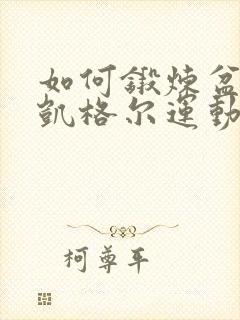 如何鍛煉盆
凱格尔運動
柯尊平